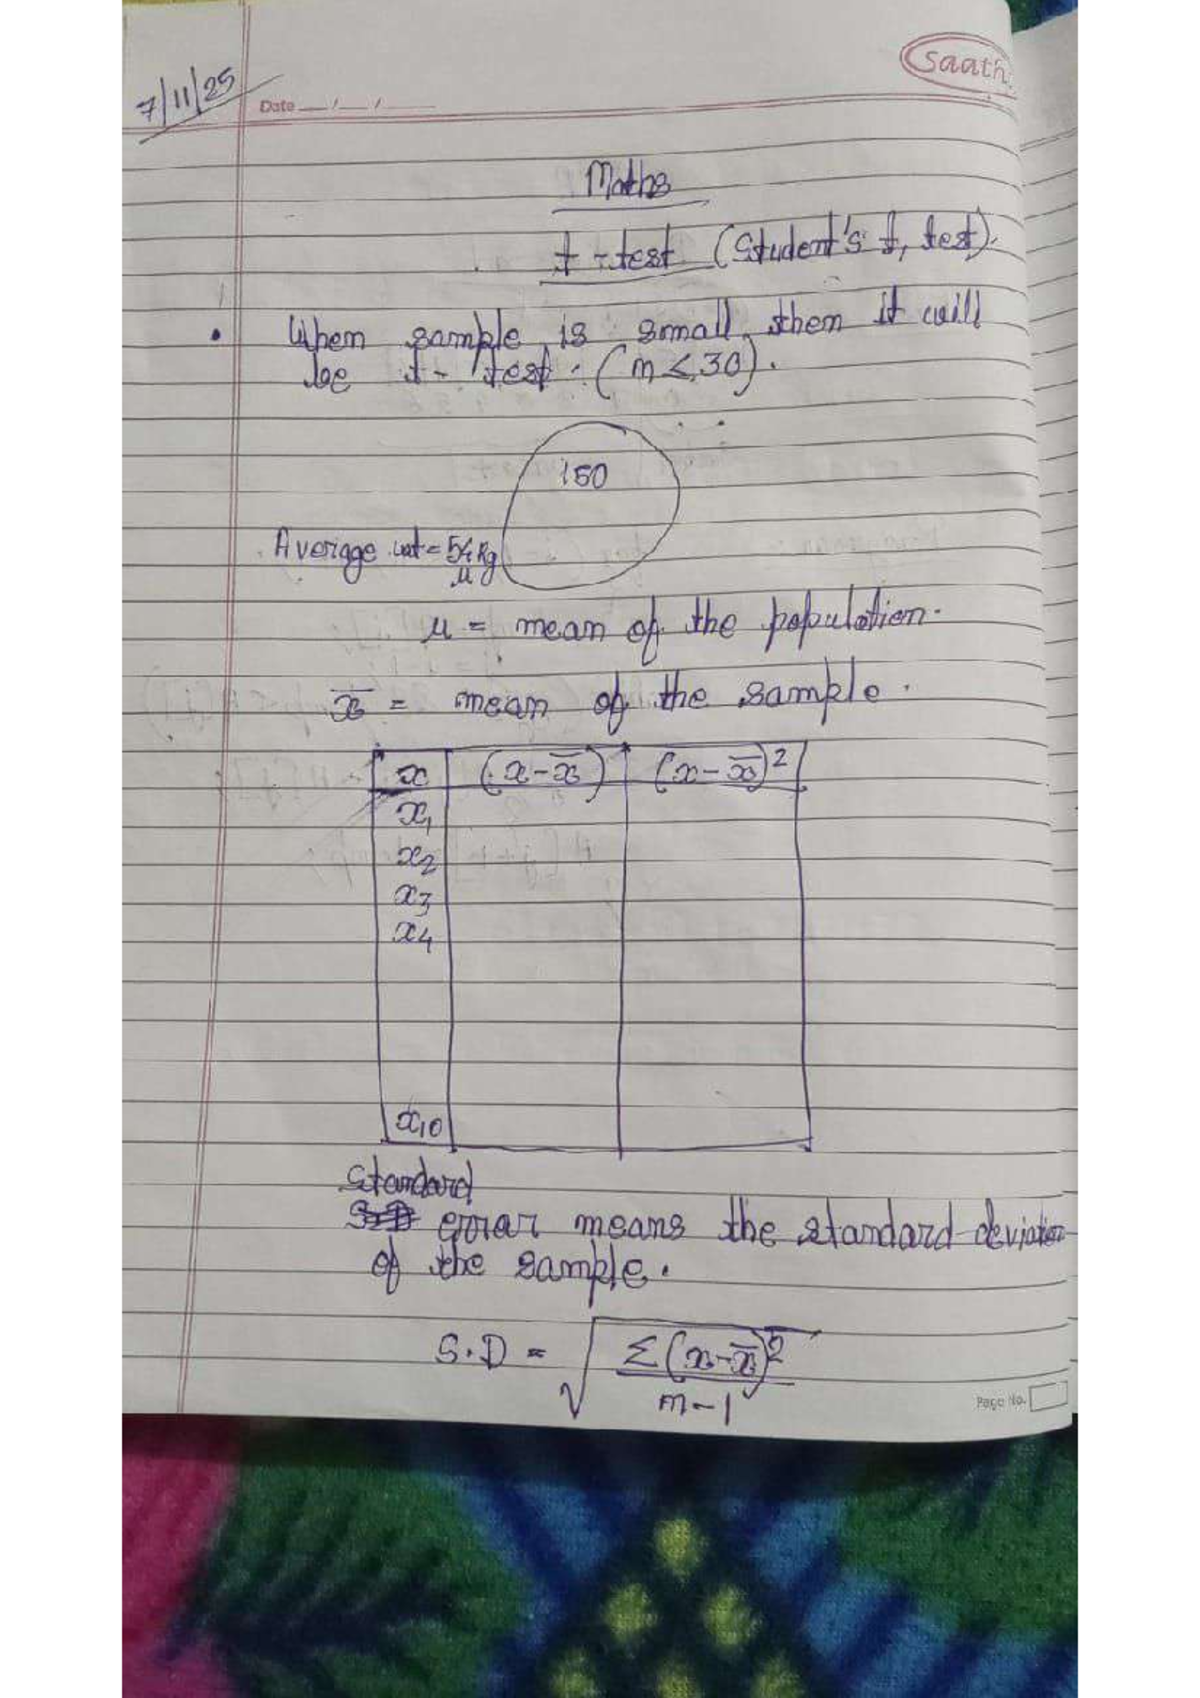 Saath
7/11/25
Date __/__/____
Maths
t-test (Student's t, test).
• When sample is small, then it will
be t- test. (n < 30).
150
Averigge wt = 54 kg
μ
μ = mean of the population.
x̅ = mean of the sample.
x (x-x̅) (x-x̅)²
x₁
x₂
x₃
x₄
x₁₀
Standard
error means the standard deviation
of the sample.
S.D = √Σ(x-x̅)²/n-1
Page No.